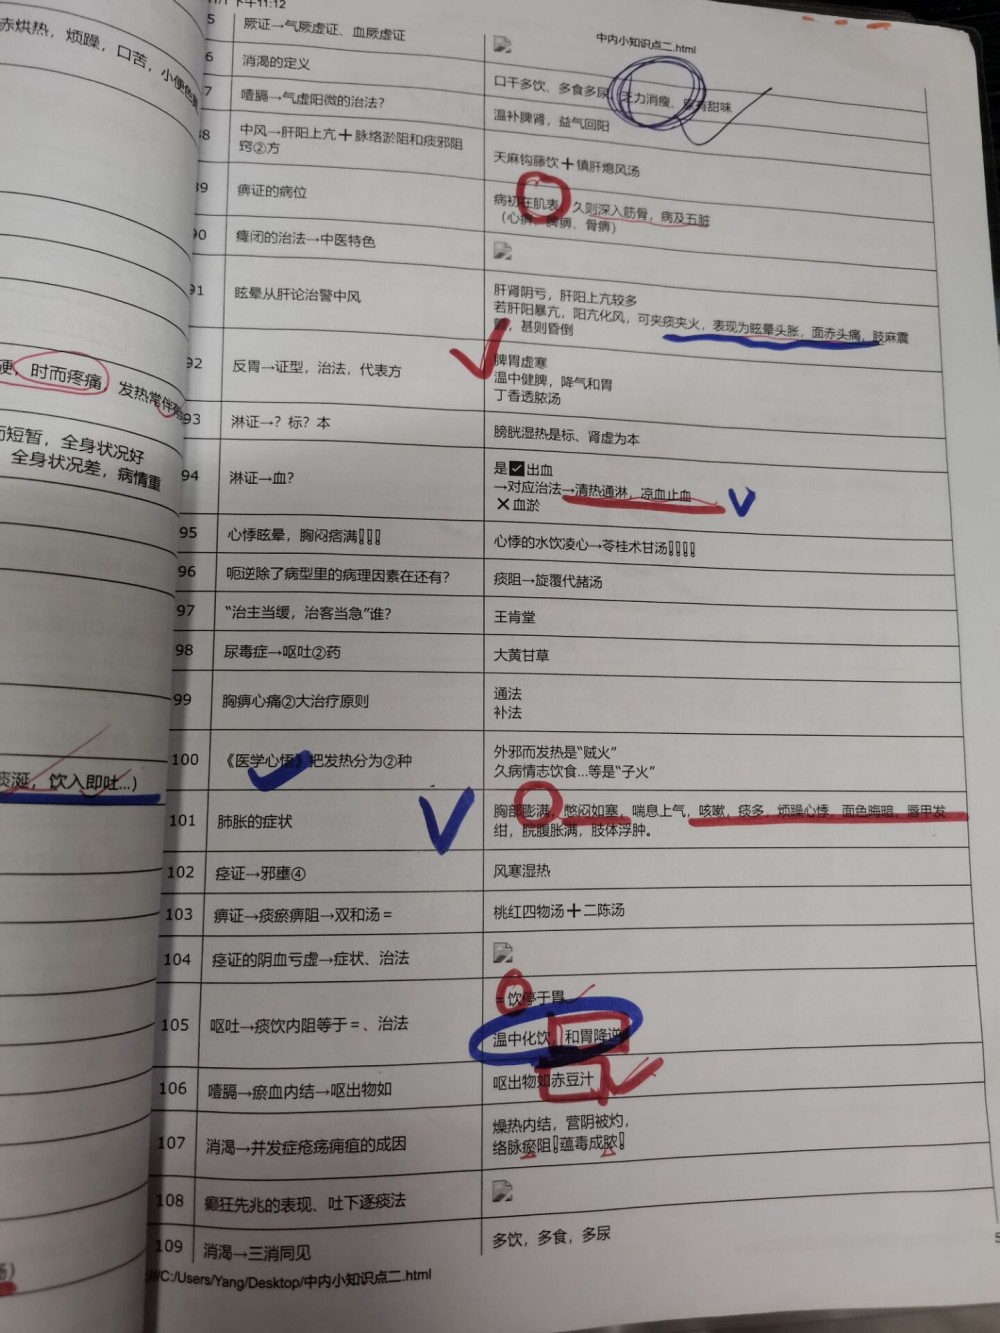 下午11:12
中内小知识点二.html
赤烘热，烦躁，口苦，小便色
硬，时而疼痛，发热常伴
短暂，全身状况好
全身状况差，病情重
痰涎，饮入即吐...）
5 厥证→气厥虚证、血厥虚证
6 消渴的定义
口干多饮、多食多尿、乏力消瘦、尿有甜味
7 噎膈→气虚阳微的治法？
温补脾肾，益气回阳
88 中风→肝阳上亢＋脉络淤阻和痰邪阻
窍②方
天麻钩藤饮＋镇肝熄风汤
89 痹证的病位
病初在肌表，久则深入筋骨，病及五脏
（心痹、脾痹、骨痹）
90 癃闭的治法→中医特色
91 眩晕从肝论治警中风
肝肾阴亏，肝阳上亢较多
若肝阳暴亢，阳亢化风，可夹痰夹火，表现为眩晕头胀，面赤头痛，肢麻震
，甚则昏倒
92 反胃→证型，治法，代表方
脾胃虚寒
温中健脾，降气和胃
丁香透脓汤
93 淋证→？标？本
膀胱湿热是标、肾虚为本
94 淋证→血？
是☑出血
→对应治法→清热通淋，凉血止血
❌血淤
95 心悸眩晕，胸闷痞满!!!
心悸的水饮凌心→苓桂术甘汤!!!!
96 呃逆除了病型里的病理因素在还有？
痰阻→旋覆代赭汤
97 “治主当缓，治客当急”谁？
王肯堂
98 尿毒症→呕吐②药
大黄甘草
99 胸痹心痛②大治疗原则
通法
补法
100 《医学心悟》把发热分为②种
外邪而发热是“贼火”
久病情志饮食...等是“子火”
101 肺胀的症状
胸部膨满，憋闷如塞，喘息上气，咳嗽，痰多，烦躁心悸，面色晦暗，唇甲发
绀，脘腹胀满，肢体浮肿。
102 痉证→邪壅④
风寒湿热
103 痹证→痰瘀痹阻→双和汤＝
桃红四物汤＋二陈汤
104 痉证的阴血亏虚→症状、治法
105 呕吐→痰饮内阻等于＝、治法
＝饮停于胃
温中化饮，和胃降逆
106 噎膈→瘀血内结→呕出物如
呕出物如赤豆汁
107 消渴→并发症疮疡痈疽的成因
燥热内结，营阴被灼，
络脉瘀阻!蕴毒成脓!
108 癫狂先兆的表现、吐下逐痰法
109 消渴→三消同见
多饮，多食，多尿
///C:/Users/Yang/Desktop/中内小知识点二.html